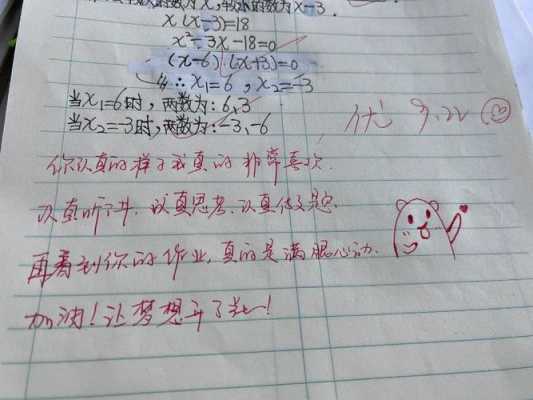 数为x,较小的数为x-3.
x(x-3)=18
x²-3x-18=0
(x-6)(x+3)=0
∴x₁=6,x₂=-3
当x₁=6时,两数为:6,3
当x₂=-3时,两数为:-3,-6
优 9.22
你认真的样子我真的非常喜欢.
认真听讲,认真思考,认真做题.
再看到你的作业,真的是满眼心动.
加油!让梦想开了花!